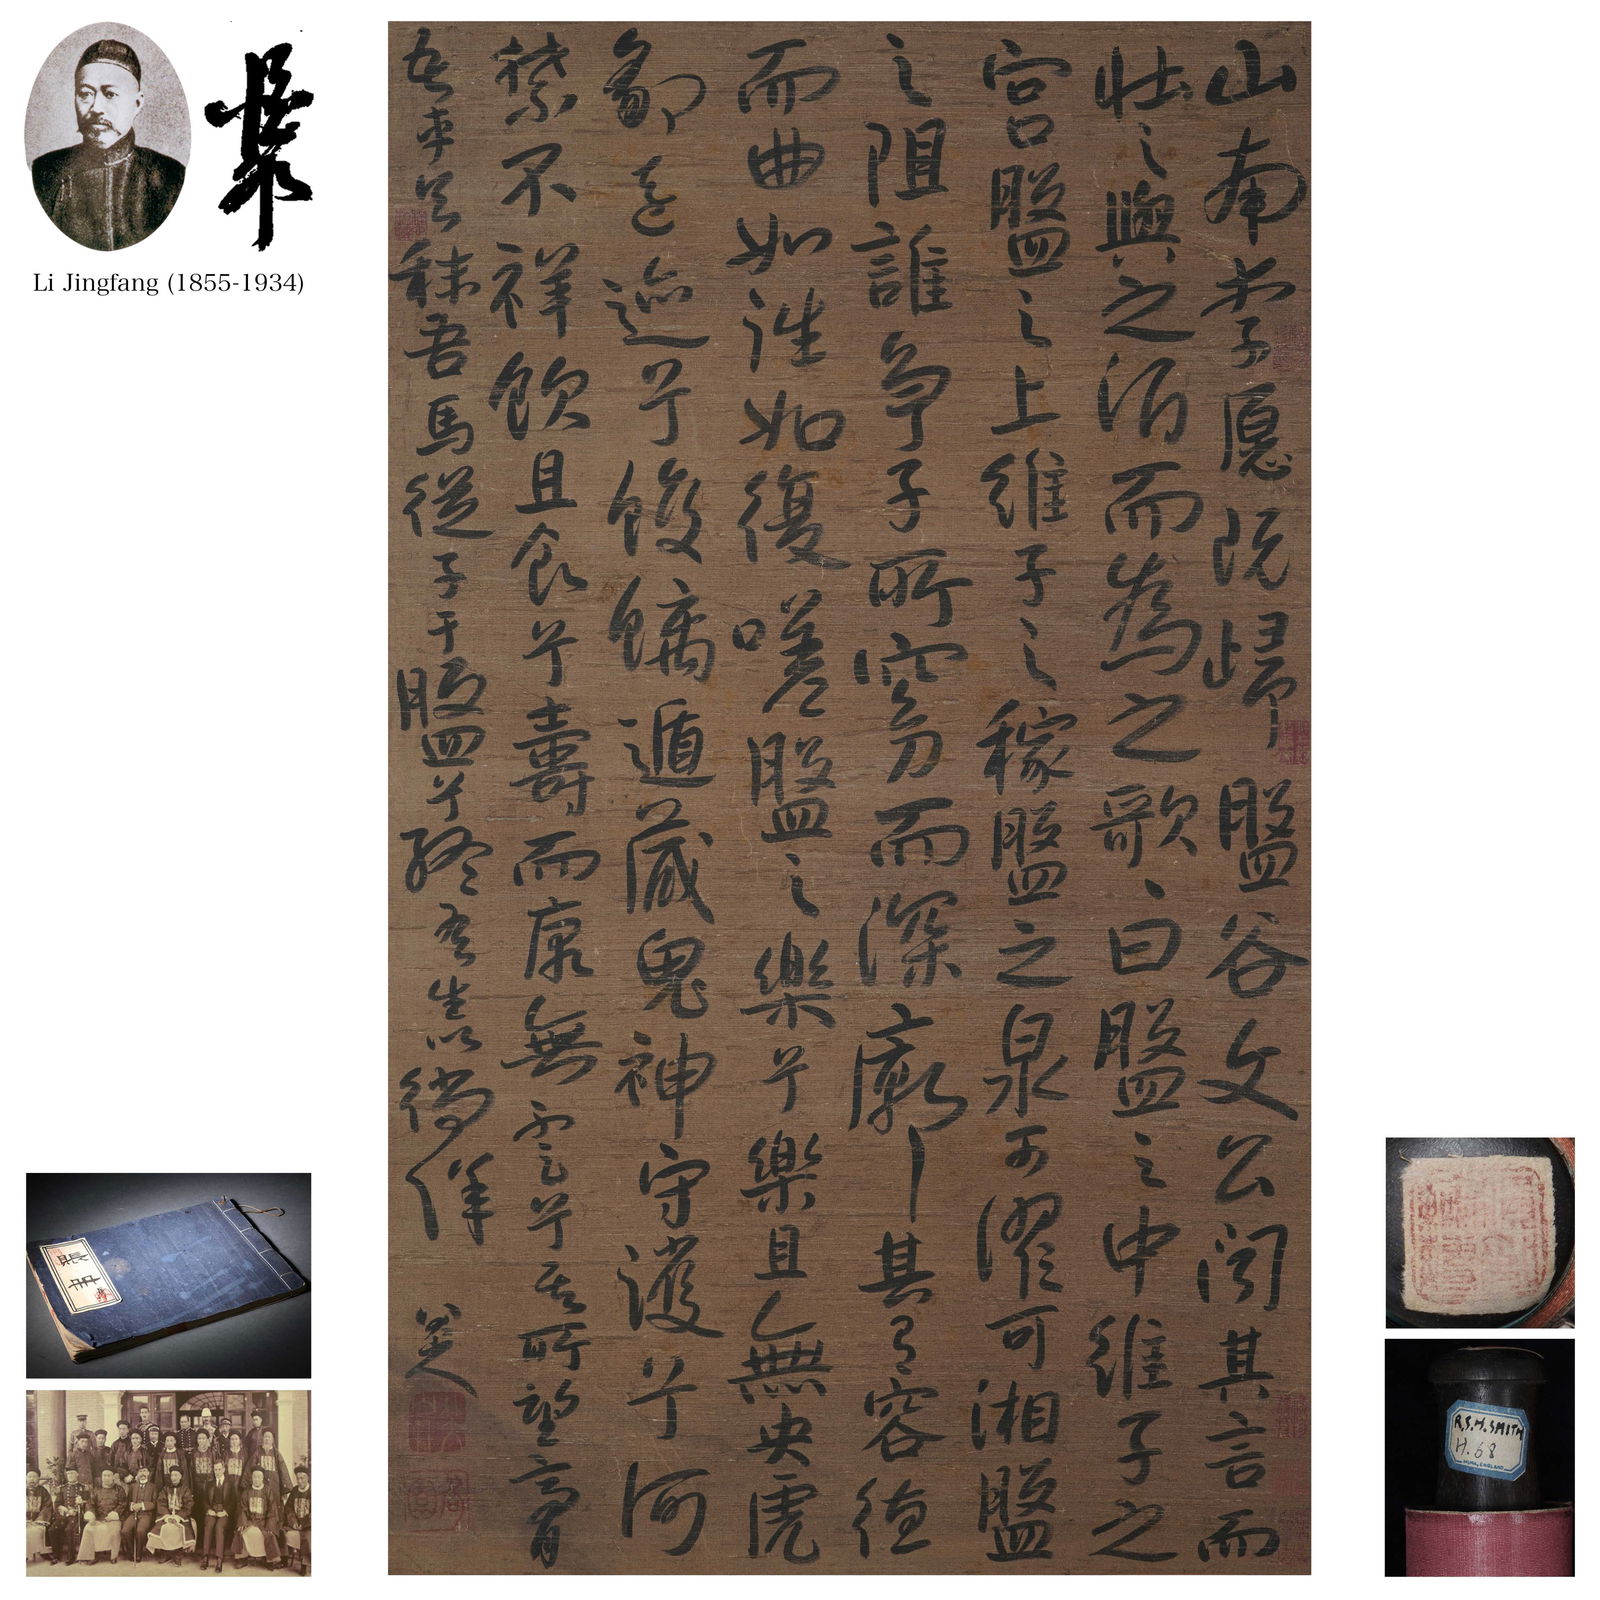 Li Jingfang (1855-1934)
山南李愿既歸盤谷文公闻其言而
壮之與之酒而為之歌丶曰盤之中維子之
宫盤之上維子之稼盤之泉可濯可湘盤
之阻誰爭子所窈而深廓丨其有容
而曲如往如復嗟盤之樂兮樂且無央虎
豹遠迹兮蛟螭遁藏鬼神守護兮呵
禁不祥飲且食兮壽而康無不足兮奚所望膏
吾車兮秣吾馬從子于盤兮終吾生以徜徉
八大
賬冊
R.S.H. SMITH
H.68